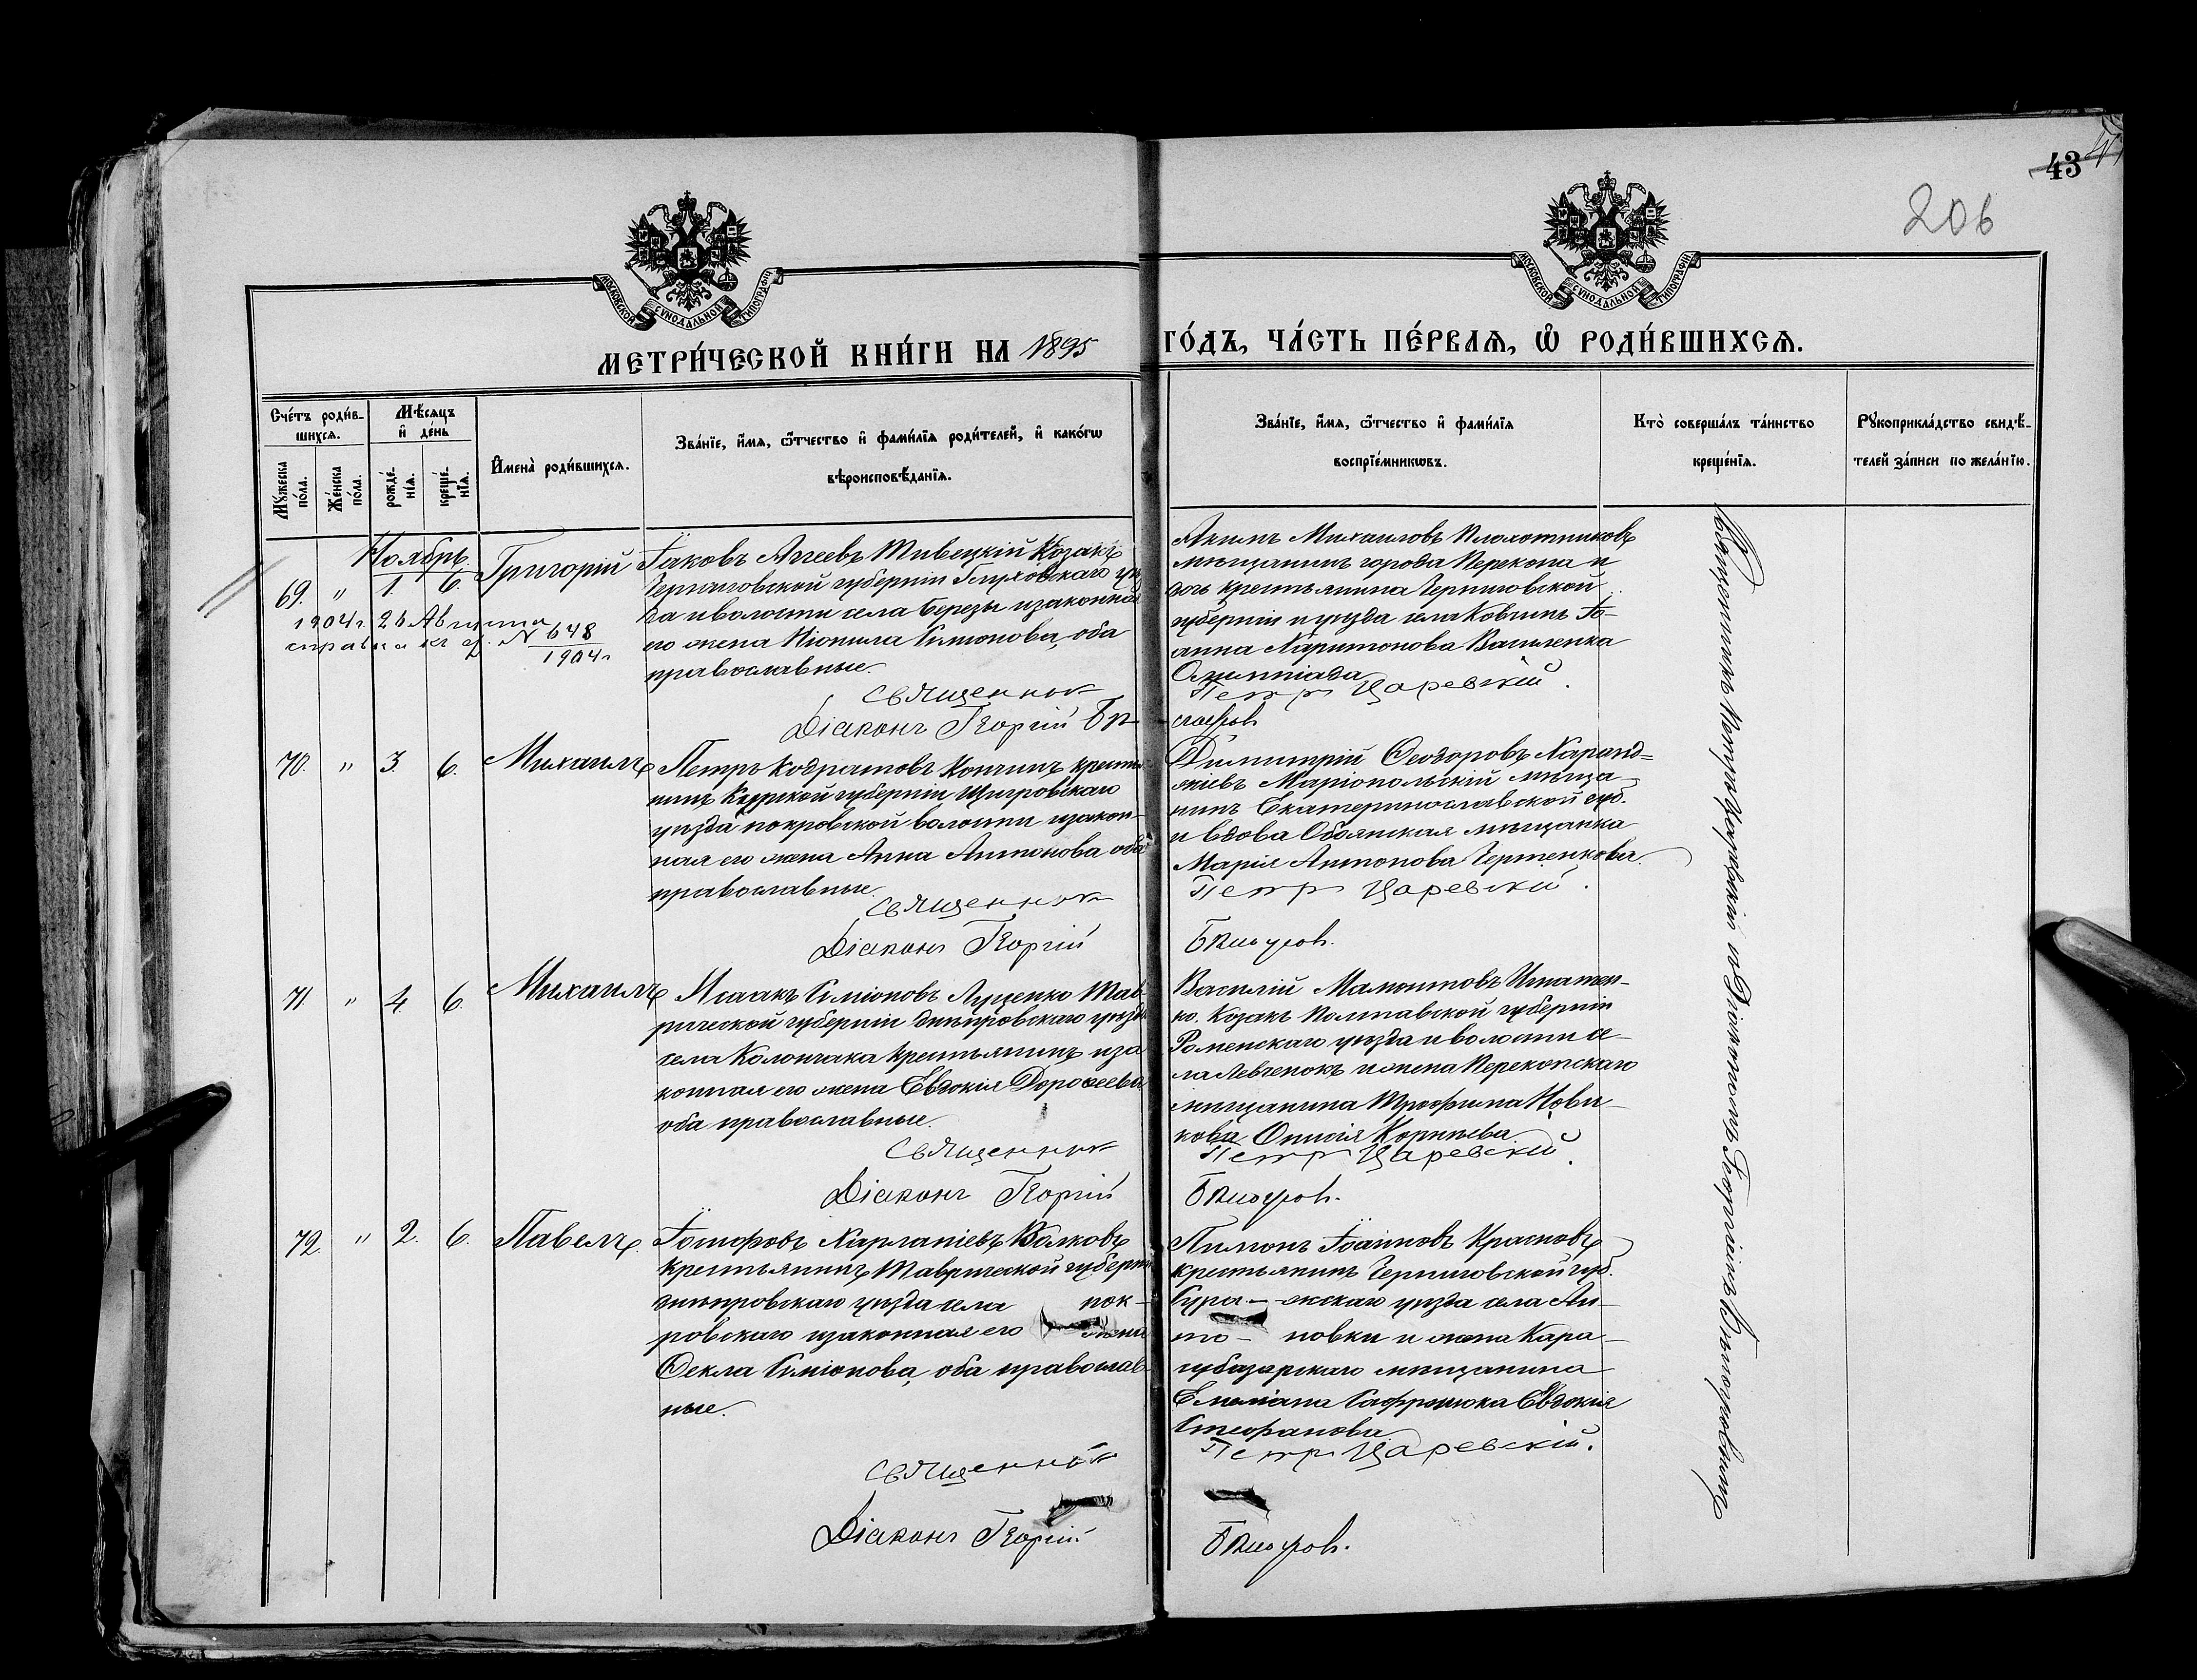 43
206
МОСКОВСКОЙ СѴНОДАЛЬНОЙ ТИПОГРАФІИ
МОСКОВСКОЙ СѴНОДАЛЬНОЙ ТИПОГРАФІИ
МЕТРИ́ЧЕСКОЙ КНИ́ГИ НА 1895
ГО́ДЪ, ЧА́СТЬ ПЕ́РВАѦ, Ѽ РОДИ́ВШИХСѦ.
Сче́тъ роди́в-
шихсѧ.
Мꙋ́жеска по́ла.
Же́нска по́ла.
Мѣ́сѧцъ
и҆ де́нь
рожде́-
нїѧ.
креще́-
нїѧ.
И҆мена̀ роди́вшихсѧ.
Зва́нїе, и҆́мѧ, ѻ҆́тчество и҆ фами́лїѧ роди́телей, и҆ како́гѡ
вѣроисповѣ́данїѧ.
Зва́нїе, и҆́мѧ, ѻ҆́тчество и҆ фами́лїѧ
воспрїе́мникѡвъ.
Кто̀ соверша́лъ та́инство
креще́нїѧ.
Рꙋкоприкла́дство свидѣ́-
телей за́писи по жела́нїю.
Ноябрь
69. " 1. 6. Григорій
1904 г. 26 Августа
справка № 648
1904 г.
Іаковъ Аггеевъ Тивецкій Козакъ
Черниговской губерніи Глуховскаго уѣз
да и волости села Березы и законная
его жена Неонила Симіонова, оба
православные.
Священник
Діаконъ Георгій
Акимъ Михаиловъ Плохотниковъ
мѣщанинъ города Перекопа и
дочь крестьянина Черниговской
губерніи и уѣзда села Ковчинъ Іо-
анна Харитонова Василенка
Олимпіада
Петръ Царевскій.
70. " 3. 6. Михаилъ
Петръ Кодратовъ Кончинъ крестья
нинъ Курской губерніи Щигровскаго
уѣзда покровской волости и закон-
ная его жена Анна Антонова оба
православные.
Священник
Діаконъ Георгій
Димитрій Ѳеодоровъ Харанд-
жіевъ Маріопольскій мѣща-
нинъ Екатеринославской губ.
и вдова Обоянская мѣщанка
Марія Антонова Чертенкова.
Петръ Царевскій.
71. " 4 6. Михаилъ
Исаакъ Симіоновъ Луценко Тав-
рической губерніи днѣпровскаго уѣзда
села Колончака крестьянинъ и за
конная его жена Евдокія Дороѳеева
оба православные.
Священник
Діаконъ Георгій
Василій Мамонтовъ Игнатен-
ко. Козакъ Полтавской губерніи
Роменскаго уѣзда и волости се-
ла Левченокъ и жена Перекопскаго
мѣщанина Трофима Нови-
кова Онисія Корнѣева.
Петръ Царевскій.
72. " 2. 6. Павелъ.
Іосифовъ Харлапіевъ Волковъ
крестьянинъ Таврической губерніи
днѣпровскаго уѣзда села пок-
ровскаго и законная его жена
Ѳекла Симіонова, оба православ-
ные.
Священник
Діаконъ Георгій
Пимонъ Іоанновъ Красновъ
крестьянинъ Черниговской губ.
Сура-жскаго уѣзда села Ан-
то-новки и жена Кара-
субазарскаго мѣщанина
Емеліана Сафронюка Евдокія
Стефанова.
Петръ Царевскій.
Священникъ Петръ Царевскій и Діаконъ Георгій